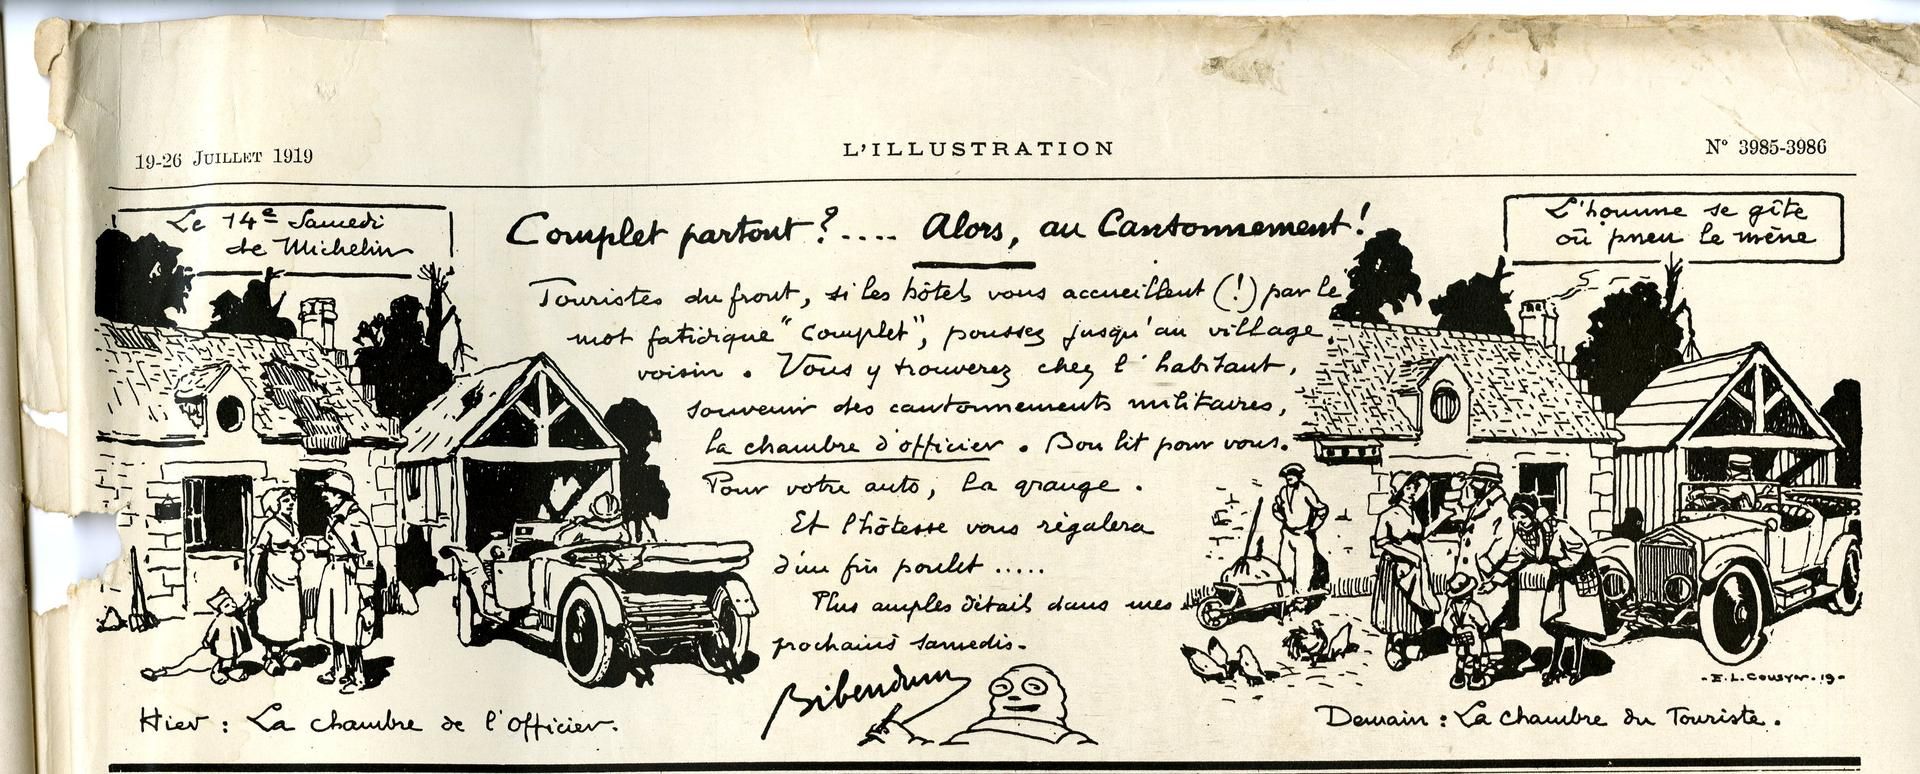 19-26 Juillet 1919
L'ILLUSTRATION
N° 3985-3986
Le 14e Samedi
de Michelin
Complet partout ?.... Alors, au Cantonnement !
L'homme se gîte
où pneu le mène
Touristes du front, si les hôtels vous accueillent (!) par le
mot fatidique "Complet", poussez jusqu'au village
voisin. Vous y trouverez chez l'habitant,
souvenir des cantonnements militaires,
la chambre d'officier. Bon lit pour vous.
Pour votre auto, la grange.
Et l'hôtesse vous régalera
d'un fin poulet .....
Plus amples détails dans mes
prochains samedis.
Bibendum
Hier : La chambre de l'Officier.
Demain : La chambre du Touriste.